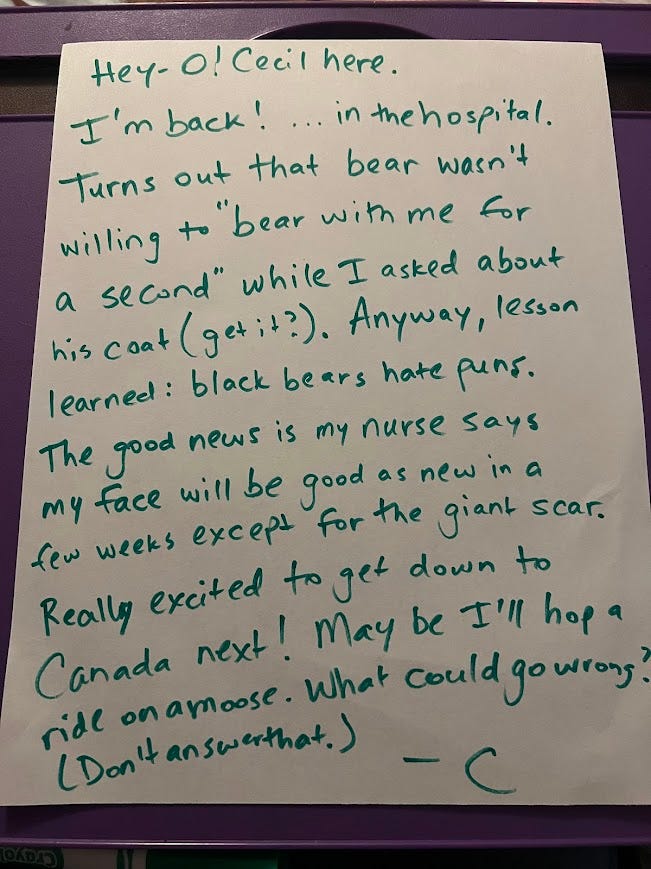 Hey-O! Cecil here.
I'm back! ... in the hospital.
Turns out that bear wasn't
willing to "bear with me for
a second" while I asked about
his coat (get it?). Anyway, lesson
learned: black bears hate puns.
The good news is my nurse says
my face will be good as new in a
few weeks except for the giant scar.
Really excited to get down to
Canada next! May be I'll hop a
ride on a moose. What could go wrong?
(Don't answer that.)
- C
Crayo